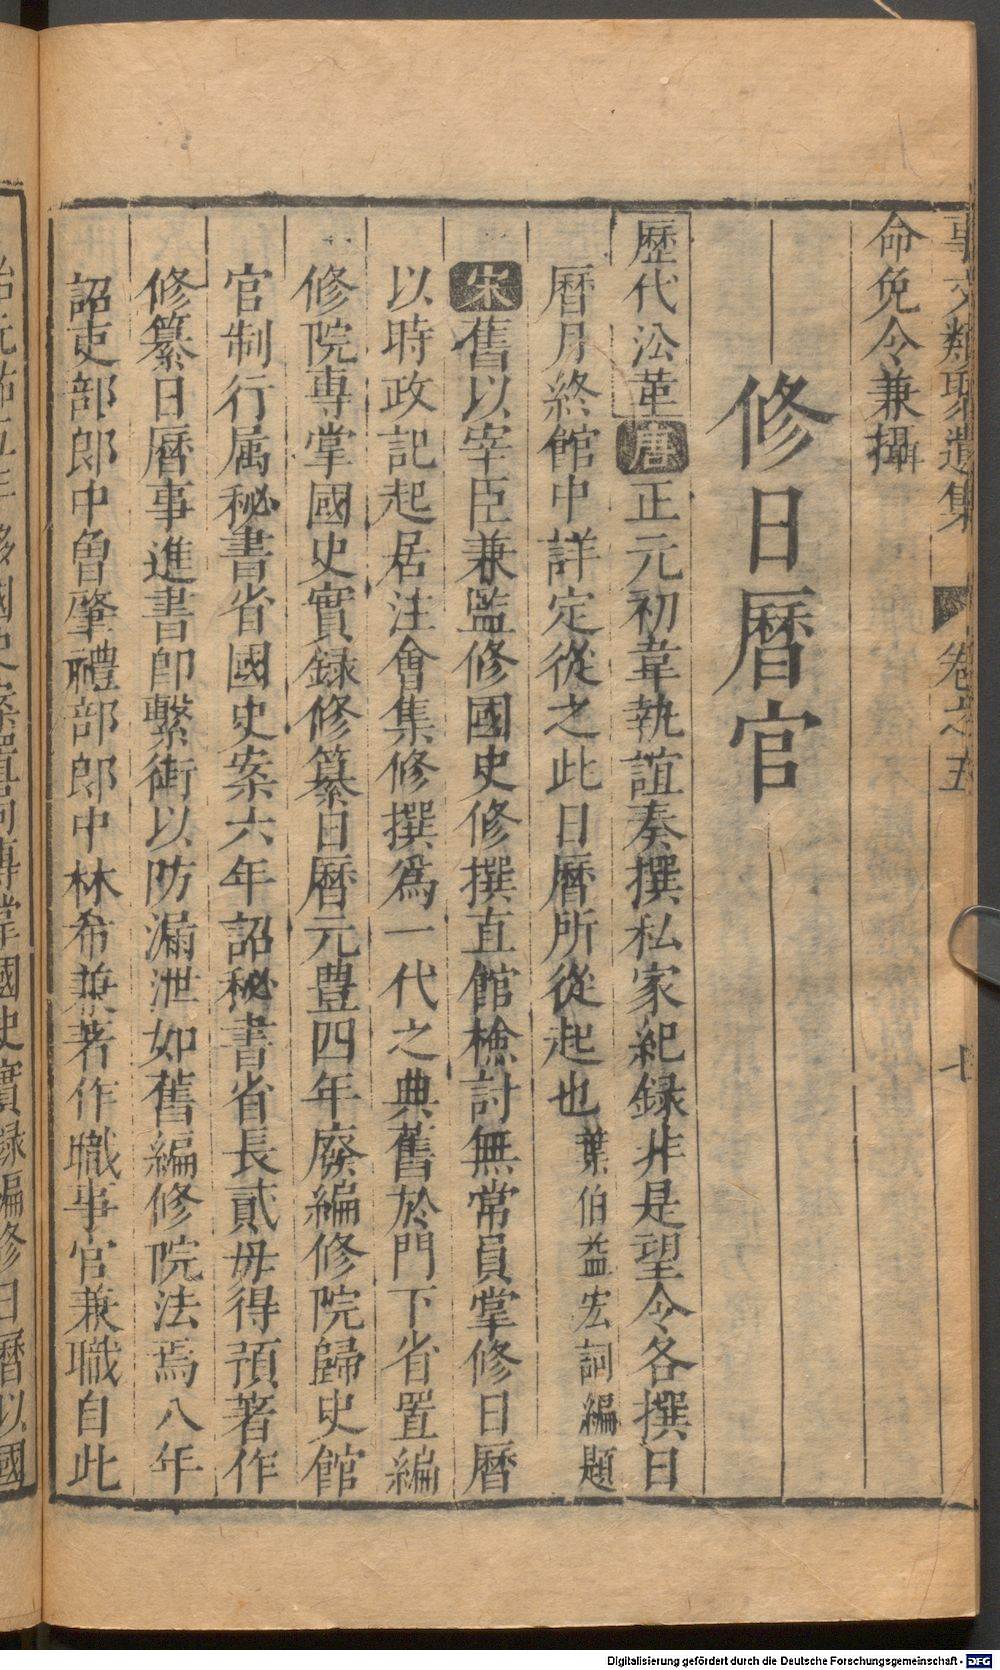 事文類聚遺集 卷之五 七
命免令兼攝
修日曆官
歷代㳂革唐正元初韋執誼奏撰私家紀録非是望令各撰日
曆月終館中詳定從之此日曆所從起也葉伯益宏詞編題
宋舊以宰臣兼監修國史修撰直館檢討無常員掌修日曆
以時政記起居注會集修撰爲一代之典舊於門下省置編
修院專掌國史實録修纂日曆元豊四年廢編修院歸史館
官制行属秘書省國史案六年詔秘書省長貳毋得預著作
修纂日曆事進書即繫銜以防漏泄如舊編修院法焉八年
詔吏部郎中曾肇禮部郎中林希兼著作職事官兼職自此
國史案置局專掌國史實録編修日曆以國
Digitalisierung gefördert durch die Deutsche Forschungsgemeinschaft - DFG